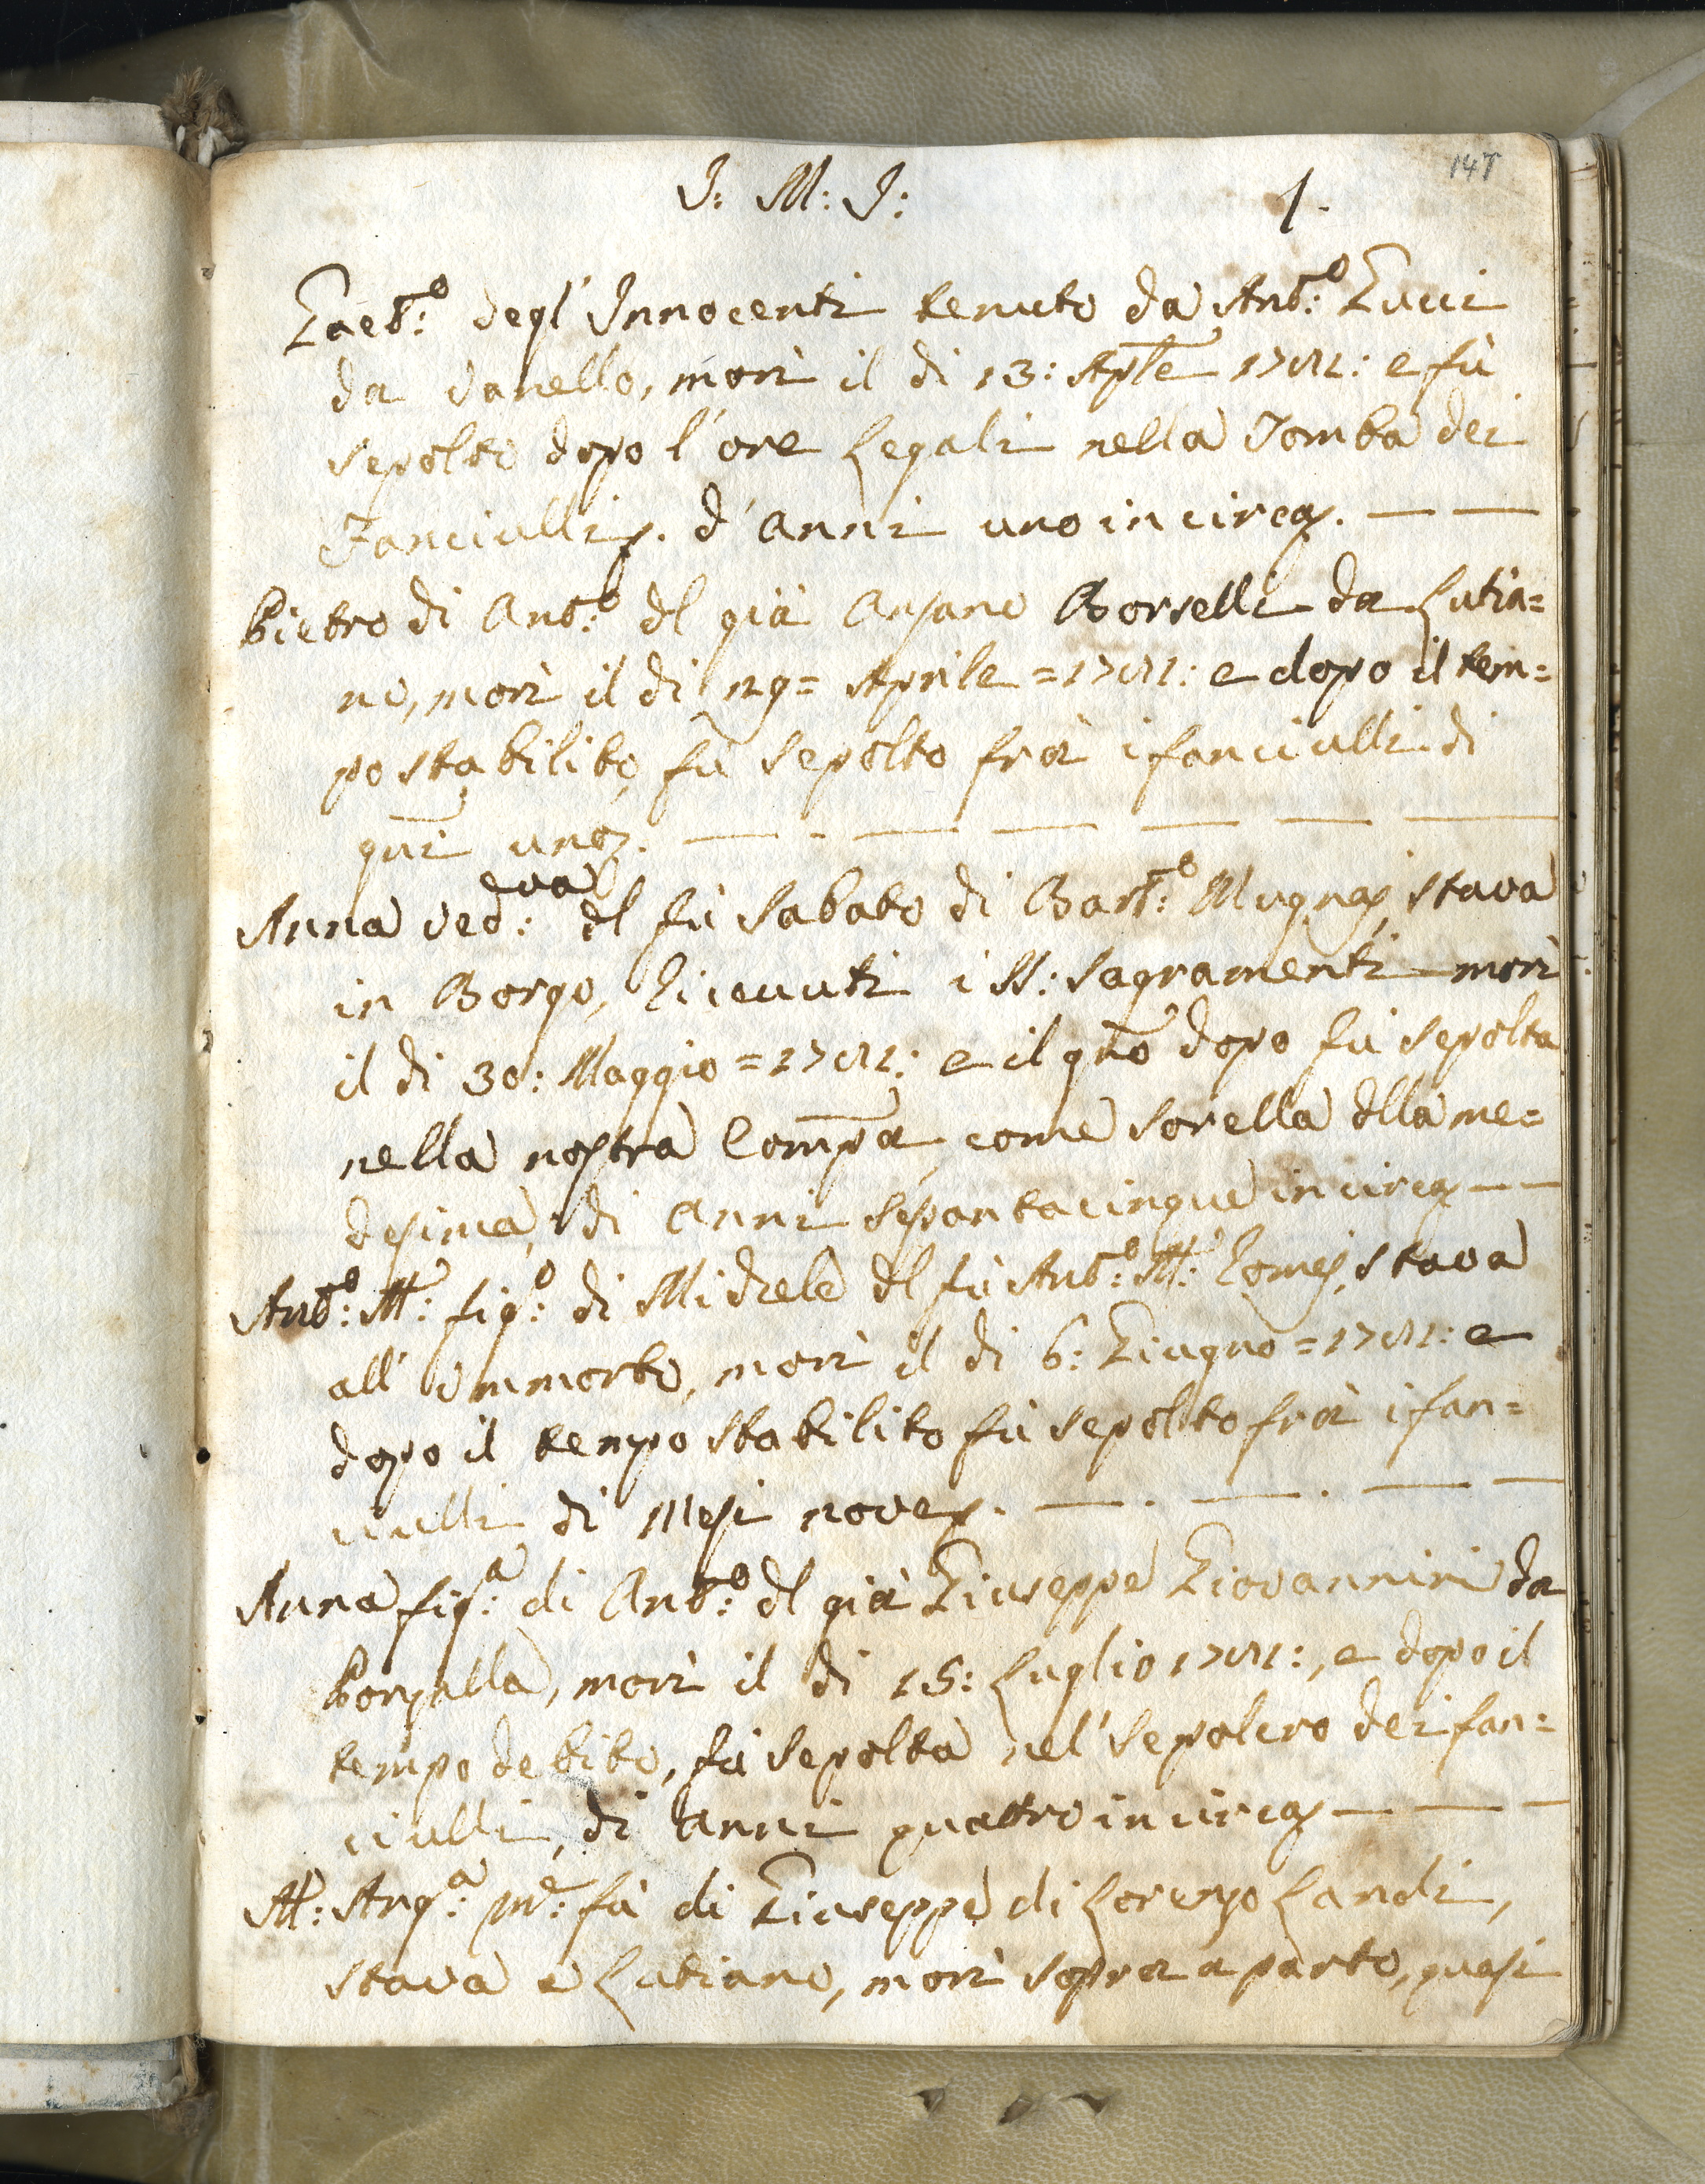 J: M: J: 1.
147
Gaet.o: degl'Innocenti tenuto da Ant.o: Lucci
da Vanello, morì il dì 13: Aple 1781: e fù
sepolto dopo l'ore legali nella Tomba dei
Fanciulli. d'anni uno in circa. — —
Pietro di Ant.o: dl già Ansano Borselli da Lutia=
no, morì il dì 29= Aprile =1781: e dopo il tem=
po stabilito, fù sepolto frà i fanciulli di
gni uno. — - — — — — —
Anna ved.ova: dl fù Sabato di Bart.o: Mugnaj, stava
in Borgo, Ricevuti i SS: Sagramenti morì
il dì 30: Maggio =1781: e il gno dopo fù sepolta
nella nostra Compa, come sorella dlla me=
desima, di anni sessantacinque in circa — —
Ant.o: M: fig.o: di Michele dl fù Ant.o: M: stava
all' Ommorto, morì il dì 6: Giugno =1781: e
dopo il tempo stabilito fù sepolto frà i fan=
ciulli di Mesi nove. — . — . — —
Anna fig.a: di Ant.o: dl già Giuseppe Giovannini da
morì il dì 15: Luglio 1781:, e dopo il
tempo debito, fù sepolta nel' sepolcro dei fan=
ciulli, di anni quattro in circa — — —
M: Ang.a: m.e: fù di Giuseppe di Lorenzo Landi,
stava a Lutiano, morì sopra a parto, quasi